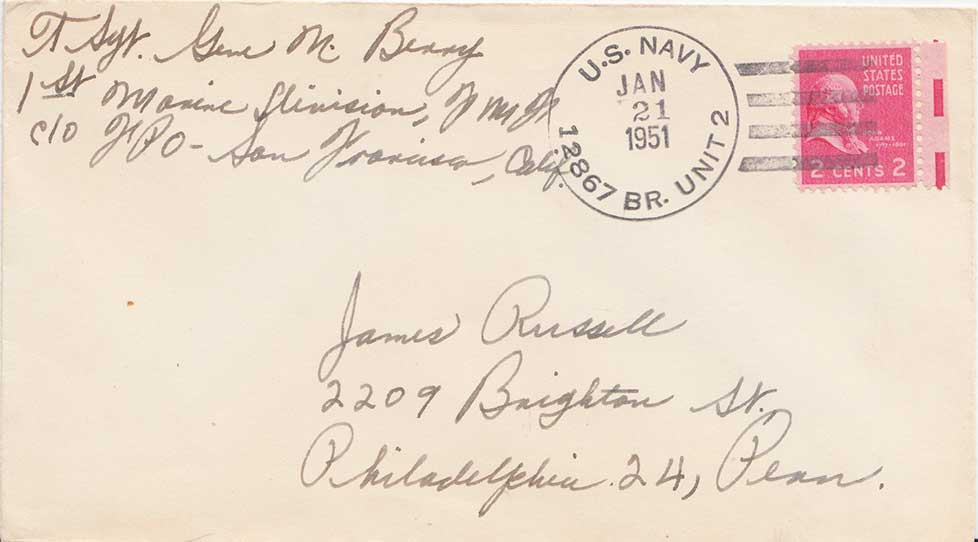 T Sgt. Gene M. Berry
1st Marine Division, FMF
c/o FPO - San Francisco, Calif.
U.S. NAVY
JAN
21
1951
12867 BR. UNIT 2
UNITED
STATES
POSTAGE
JOHN
ADAMS
1797-1801
2 CENTS 2
James Russell
2209 Brighton St.
Philadelphia 24, Penn.